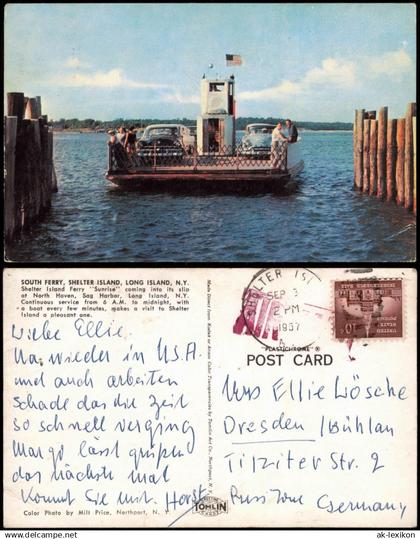 SOUTH FERRY, SHELTER ISLAND, LONG ISLAND, N.Y.
Shelter Island Ferry "Sunrise" coming into its slip
at North Haven, Sag Harbor, Long Island, N.Y.
Continuous service from 6 A.M. to midnight, with
a boat every few minutes, makes a visit to Shelter
Island a pleasant one.
Liebe Ellie.
Na, wieder in USA
und auch arbeiten
Schade das die Zeit
so schnell verging
Margo lässt grüßen
das nächste mal
kommt Sie mit. Horst
Color Photo by Milt Price, Northport, N. Y.
Made Direct from Kodak or Ansco Color Transparencies by Tomlin Art Co., Northport, N. Y.
TOMLIN
SHELTER ISL
SEP 3
2 PM
1957
"PLASTICHROME" ®
POST CARD
UNITED STATES POSTAGE
10¢
Mrs Ellie Lösche
Dresden / Bühlau
Tilziter Str. 2
Russ Zone Germany
© ak-lexikon.com